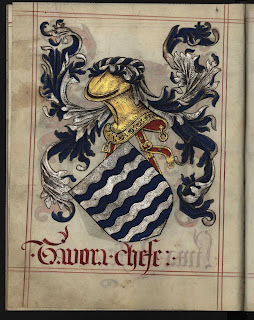 Tavora · chefe ·